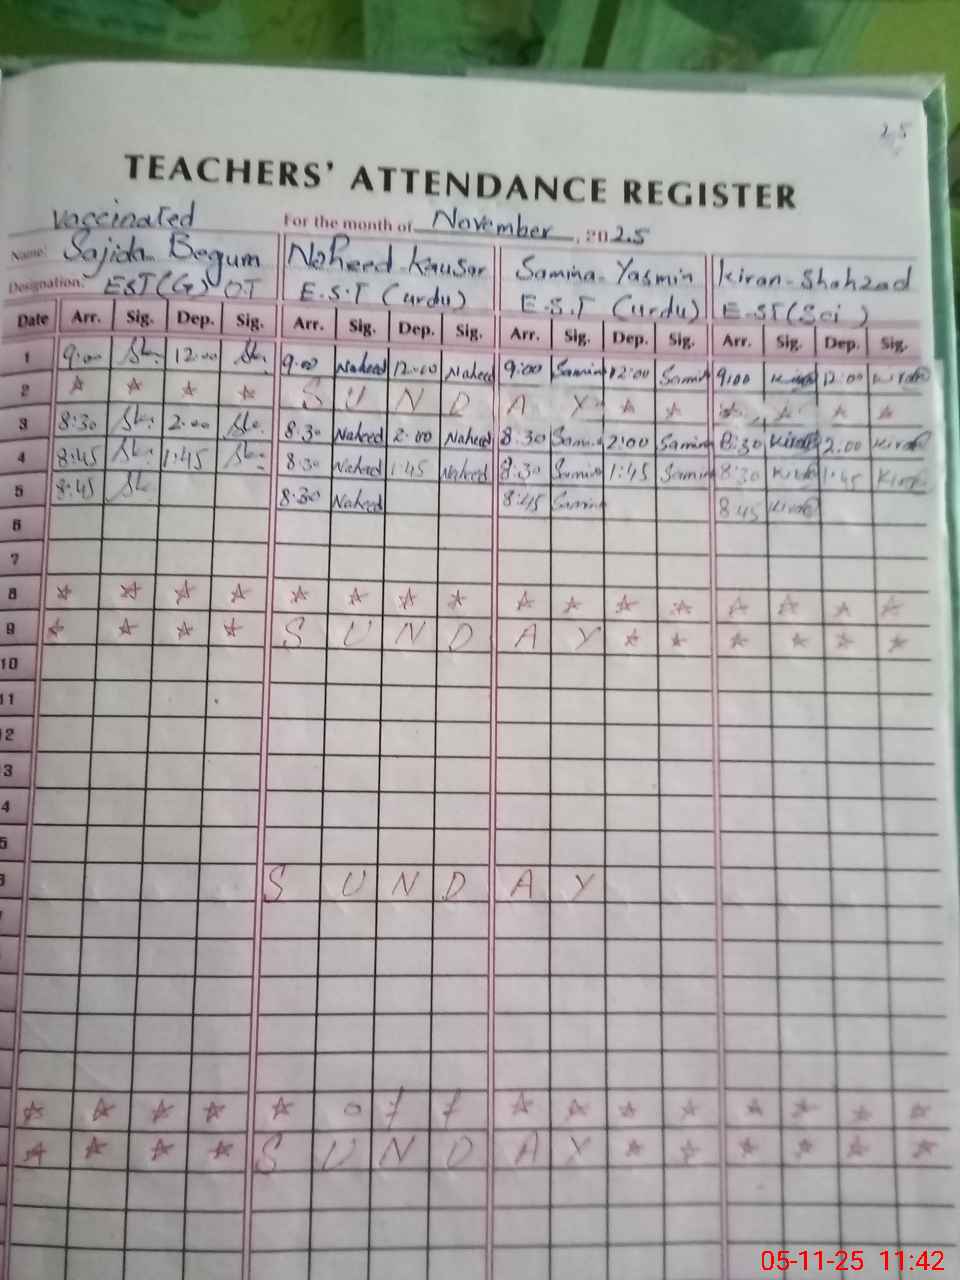 25
TEACHERS' ATTENDANCE REGISTER
vaccinated For the month of November, 2025
Name: Sajida Begum Naheed Kausar Samina Yasmin Kiran Shahzad
Designation: EST(G) OT E.S.T (urdu) E.S.T (urdu) E-ST(Sci)
Date Arr. Sig. Dep. Sig. Arr. Sig. Dep. Sig. Arr. Sig. Dep. Sig. Arr. Sig. Dep. Sig.
1 9:00 12:00 9:00 Naheed 12:00 Naheed 9:00 Samina 12:00 Samina 9:00 Kiran 12:00 Kiran
2 S U N D A Y
3 8:30 2:00 8:30 Naheed 2:00 Naheed 8:30 Sam 2:00 Samina 8:30 Kiran 2:00 Kiran
4 8:45 1:45 8:30 Naheed 1:45 Naheed 8:30 Samina 1:45 Samina 8:30 Kiran 1:45 Kiran
5 8:45 8:30 Naheed 8:45 Samina 8:45 Kiran
6
7
8
9 S U N D A Y
10
11
2
3
4
5
S U N D A Y
o f f
S U N D A Y
05-11-25 11:42